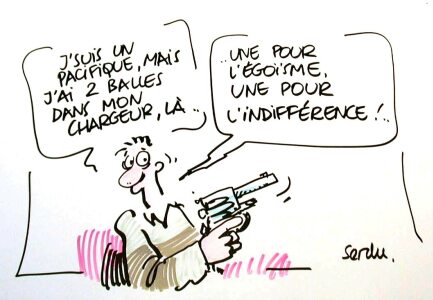 J'SUIS UN
PACIFIQUE, MAIS
J'AI 2 BALLES
DANS MON
CHARGEUR, LÀ..
..UNE POUR
L'ÉGOÏSME,
UNE POUR
L'INDIFFÉRENCE!..
Serdu.